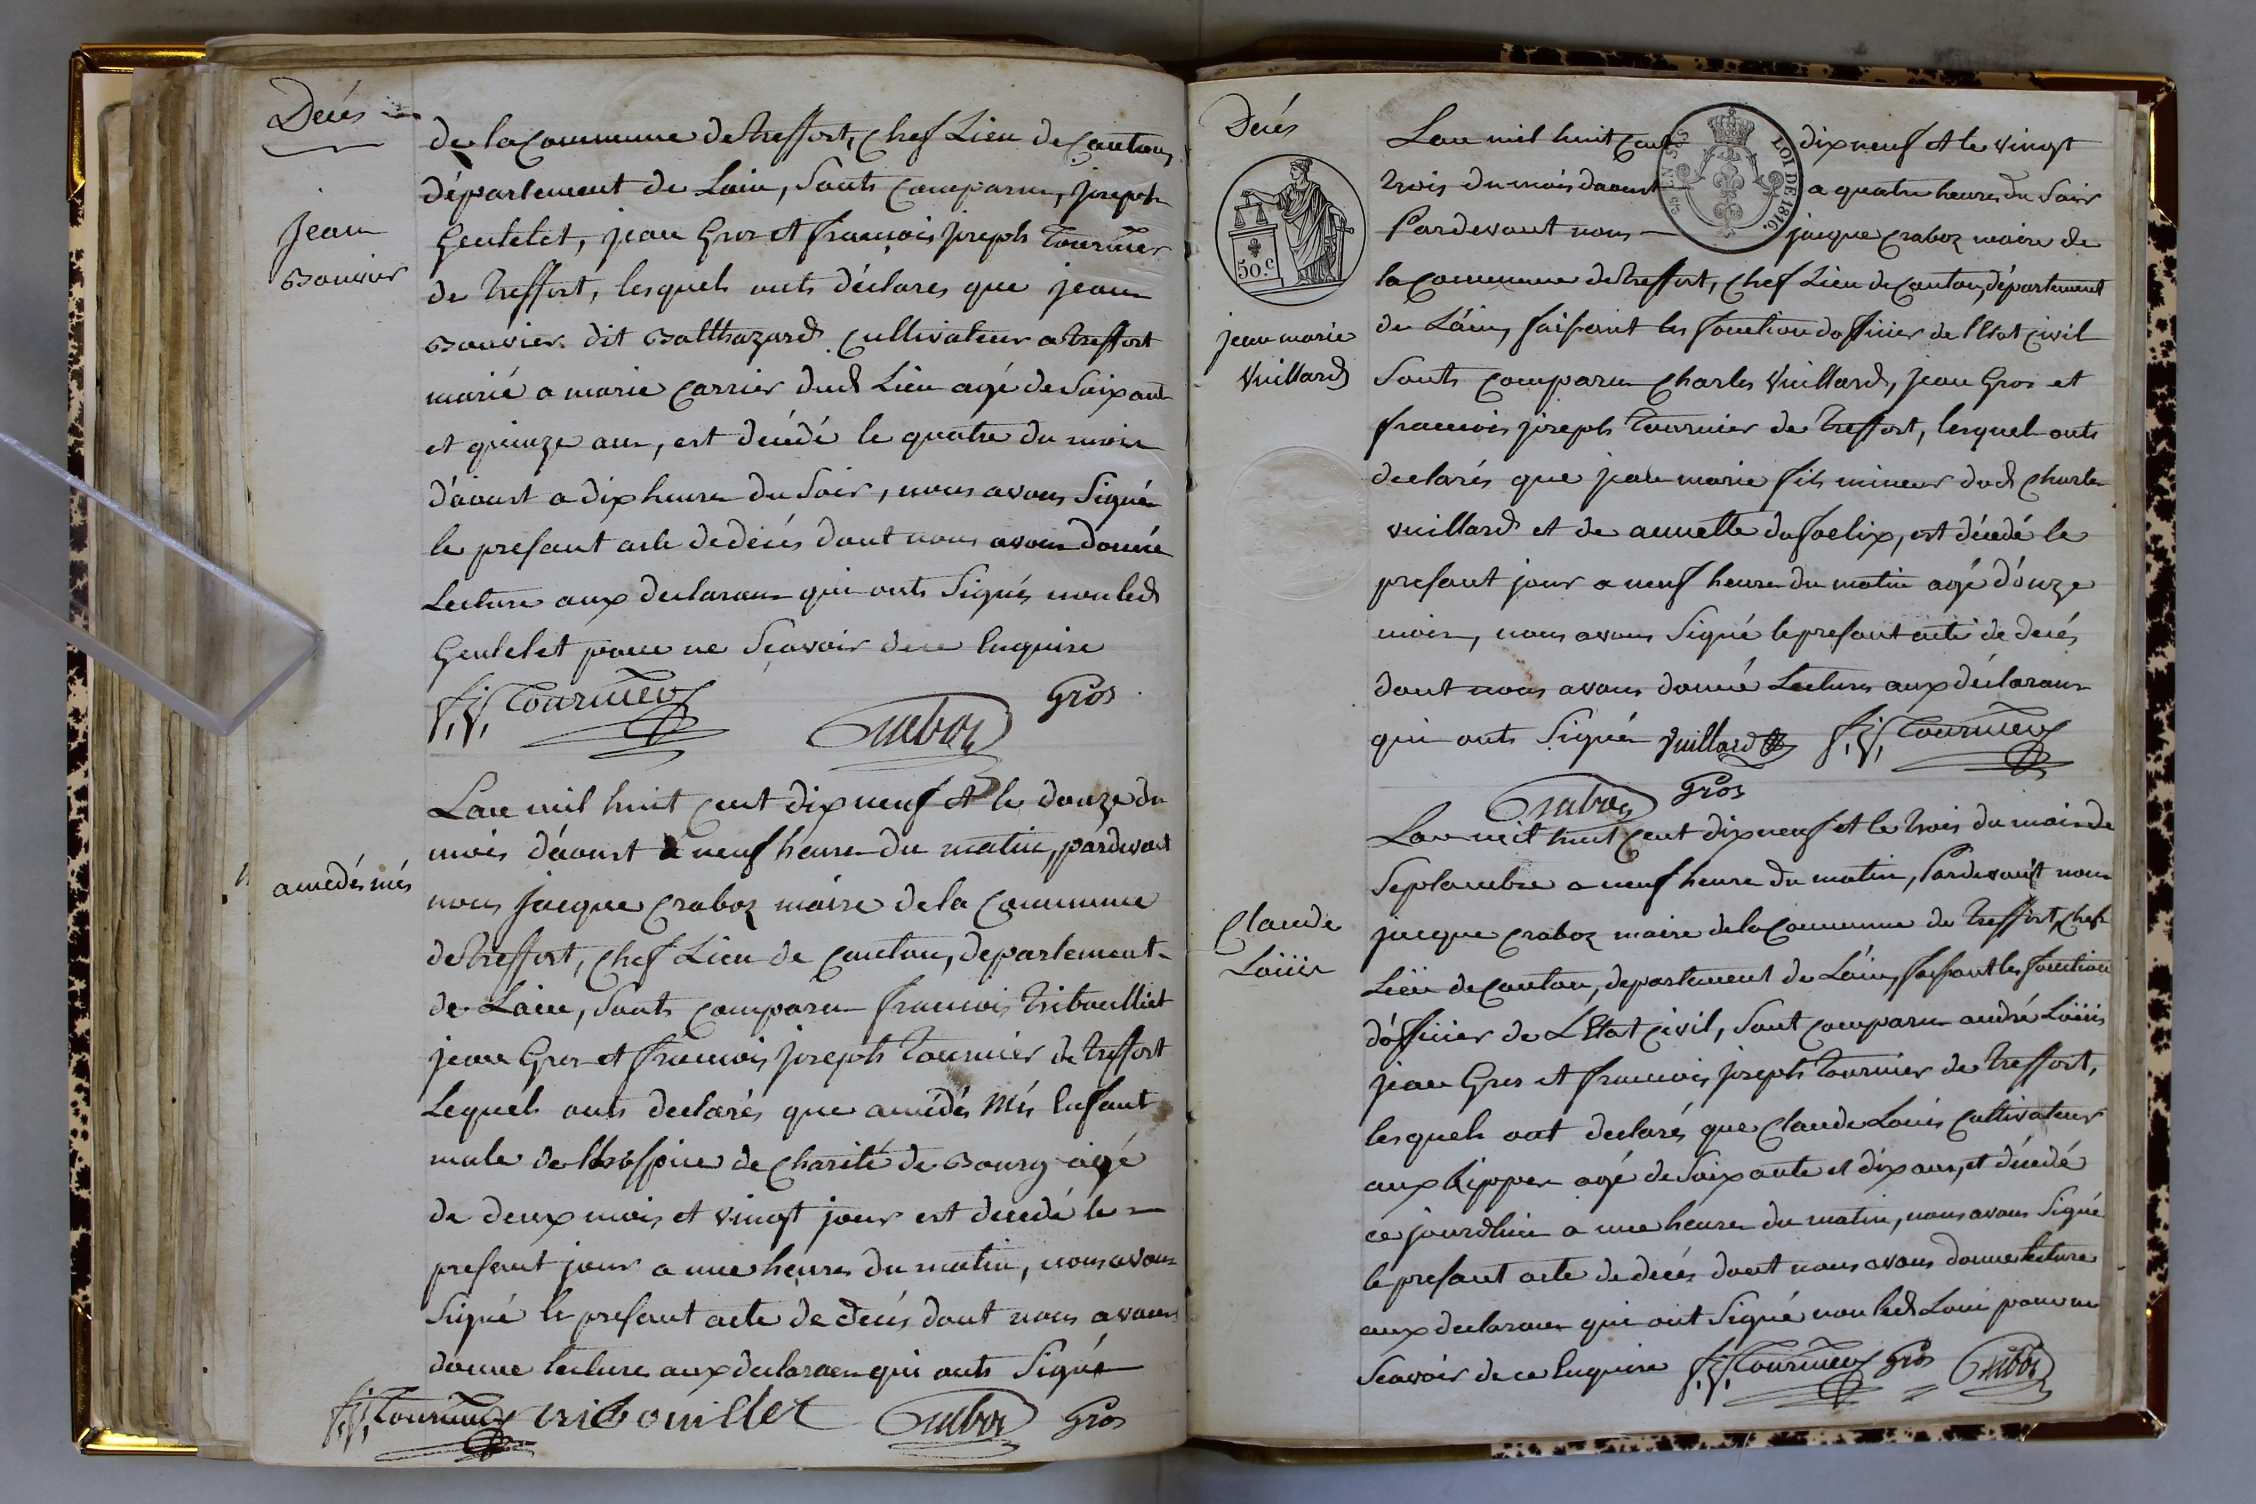 Decés
Jean
Bouvier
de la Commune de treffort, Chef Lieu de Canton,
département de Lain, sonts comparus, joseph
Gentelet, jean Gros et francois joseph Tournier
de treffort, lesquels onts déclarés que jean
Bouvier dit Balthazard Cultivateur a treffort
marié a marie Carrier dud Lieu agé de Soixante
et quinze ans, est décédé le quatre du mois
d'aoust a dix heures du Soir, nous avons Signé
le presant acte de decés dont nous avons donné
Lecture aux declarans qui onts Signés non led
Gentelet pour ne Scavoir de ce Enquire
f. j. Tournier
Craboz
Gros
Lan mil huit Cent dix neuf et le douze du
mois d'aoust a neuf heures du matin, pardevant
amédés més
nous Jacque Craboz maire de la Commune
de treffort, Chef Lieu de Canton, departement
de Lain, sonts comparus francois tribouilliet
jean Gros et francois joseph Tournier de treffort
Lequels onts declarés que amédés més Enfant
male de lhospice de Charité de Bourg agé
de deux mois et vingt jour est decedé le
presant jour a une heures du matin, nous avons
Signé le presant acte de decés dont nous avons
donne lecture aux declaraen qui onts Signé
f. j. Tournier tribouillet Craboz Gros
Decés
50.c
jean marie
Vuillard
LOI DE 1816.
Lan mil huit Cent dix neuf et le vingt
trois du mois daoust a quatre heures du Soir
Pardevant nous jacque Craboz maire de
la Commune de treffort, Chef Lieu de Canton, département
de Láin, faisant les fonction dofficier de l'Etat Civil
Sonts comparus Charles Vuillard, jean Gros et
francois joseph Tournier de treffort, lesquels onts
declarés que jean marie fils mineur dud Charles
Vuillard et de annette dufoelix, est décédé le
presant jour a neuf heures du matin agé d'onze
mois, nous avons Signé le presant acte de decés
dont nous avons donné Lectures aux déclarans
qui onts Signés Vuillard f. j. Tournier
Craboz Gros
Lan mil huit Cent dix neuf et le trois du mois de
Septambre a neuf heure du matin, Pardevant nous
Claude
Loüis
jacque Craboz maire de la Commune de treffort, chef
Lieu de Canton, departement de Láin, faisant les fonction
d'officier de L'Etat Civil, Sont comparus andré Loüis
jean Gros et francois joseph Tournier de treffort,
lesquels ont declarés que Claude Louis Cultivateur
aux Lipper agé de Soixante et dix ans, et décédé
ce jourdhui a une heures du matin, nous avons Signé
le presant acte de decés dont nous avons donne lecture
aux declaraen qui ont Signé non led Loui pour ne
Scavoir de ce Enquire f. j. Tournier Gros Craboz